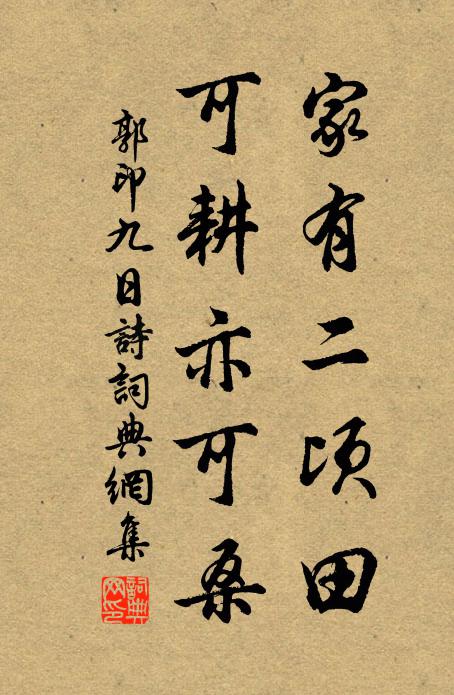 家有二頃田
可耕亦可桑
郭印九日詩詞典網集
詞典
网印